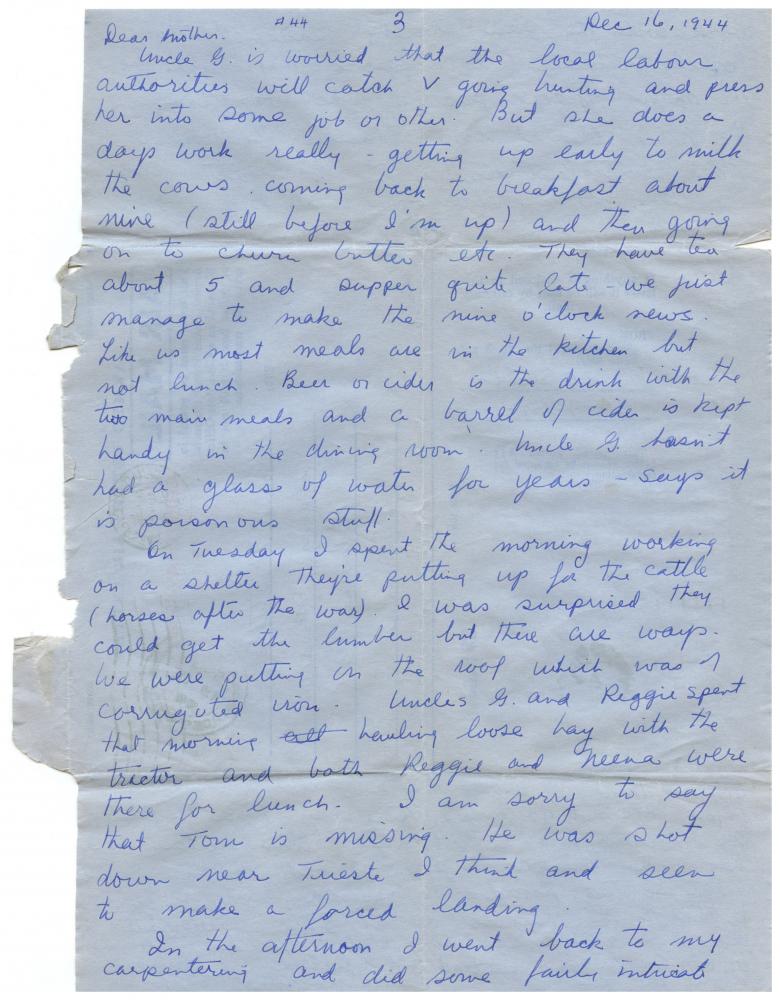 #44 3 Dec 16, 1944
Dear Mother.
Uncle G. is worried that the local labour
authorities will catch V going hunting and press
her into some job or other. But she does a
days work really - getting up early to milk
the cows. coming back to breakfast about
nine (still before I'm up) and then going
on to churn butter etc. They have tea
about 5 and supper quite late - we just
manage to make the nine o'clock news.
Like us most meals are in the kitchen but
not lunch. Beer or cider is the drink with the
two main meals and a barrel of cider is kept
handy in the dining room. Uncle G. hasn't
had a glass of water for years - says it
is poisonous stuff.
On Tuesday I spent the morning working
on a shelter they're putting up for the cattle
(horses after the war). I was surprised they
could get the lumber but there are ways.
We were putting on the roof which was of
corrugated iron. Uncles G. and Reggie spent
that morning all hauling loose hay with the
tractor and both Reggie and Neena were
there for lunch. I am sorry to say
that Tom is missing. He was shot
down near Trieste I think and seen
to make a forced landing.
In the afternoon I went back to my
carpentering and did some fairly intricate